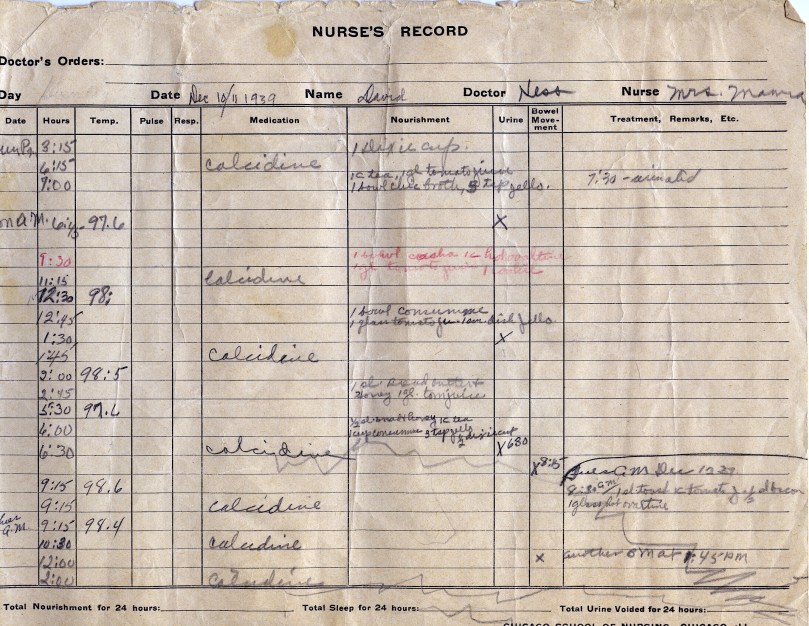 NURSE'S RECORD
Doctor's Orders:
Day Date Dec 10/11 1939 Name David Doctor Ness Nurse Mrs.
Date Hours Temp. Pulse Resp. Medication Nourishment Urine Bowel Move-ment Treatment, Remarks, Etc.
3:15 1 Dixie cup.
6:15 Calcidine 1c tea, 1 gl tomato juice
7:00 1 bowl chic broth, 3 tsp jello. 7:30 - urinated
A.M. 6:45 97.6 X
9:30 1 bowl 1c
11:15 Calcidine 1 gl tomato juice
12:30 98:
12:45 1 bowl consumme
1 glass tomato ju. dish jello
1:30 X
1:45 Calcidine
2:00 98:5
2:45 honey 1 gl. tom juice
5:30 97.6
6:00 honey 1c tea
1 cup consumme 3 tsp jello
6:30 Calcidine X 630
X 8:35 Tues A.M. Dec 12
9:15 98.6 8:30 A.M. toast tomato bacon
9:15 Calcidine 1 glass
A.M. 9:15 98.4
10:30 Calcidine
12:00 X another BM at 1:45 PM
2:00 Calcidine
Total Nourishment for 24 hours: Total Sleep for 24 hours: Total Urine Voided for 24 hours:
CHICAGO SCHOOL OF NURSING, CHICAGO